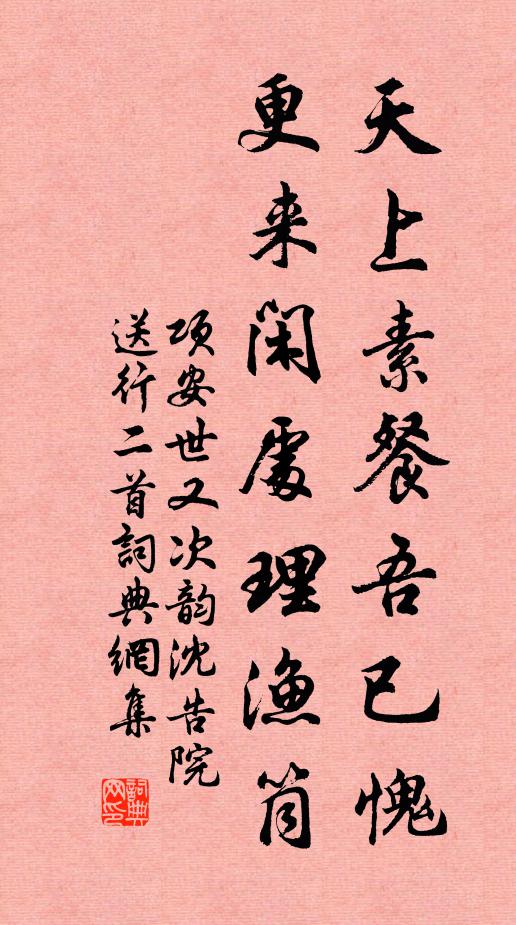 天上素餐吾已愧
更来闲處理漁筒
项安世又次韵沈告院
送行二首詞典網集
詞典
网印